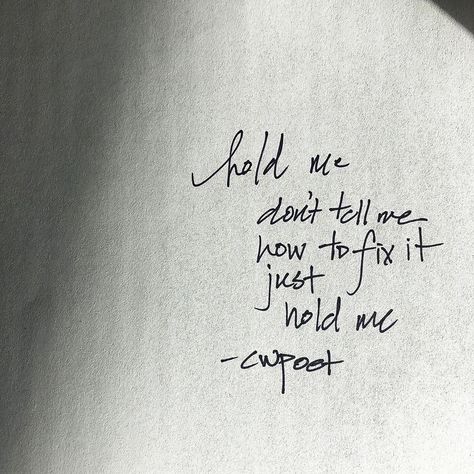 hold me
don't tell me
how to fix it
just
hold me
-cwpoet